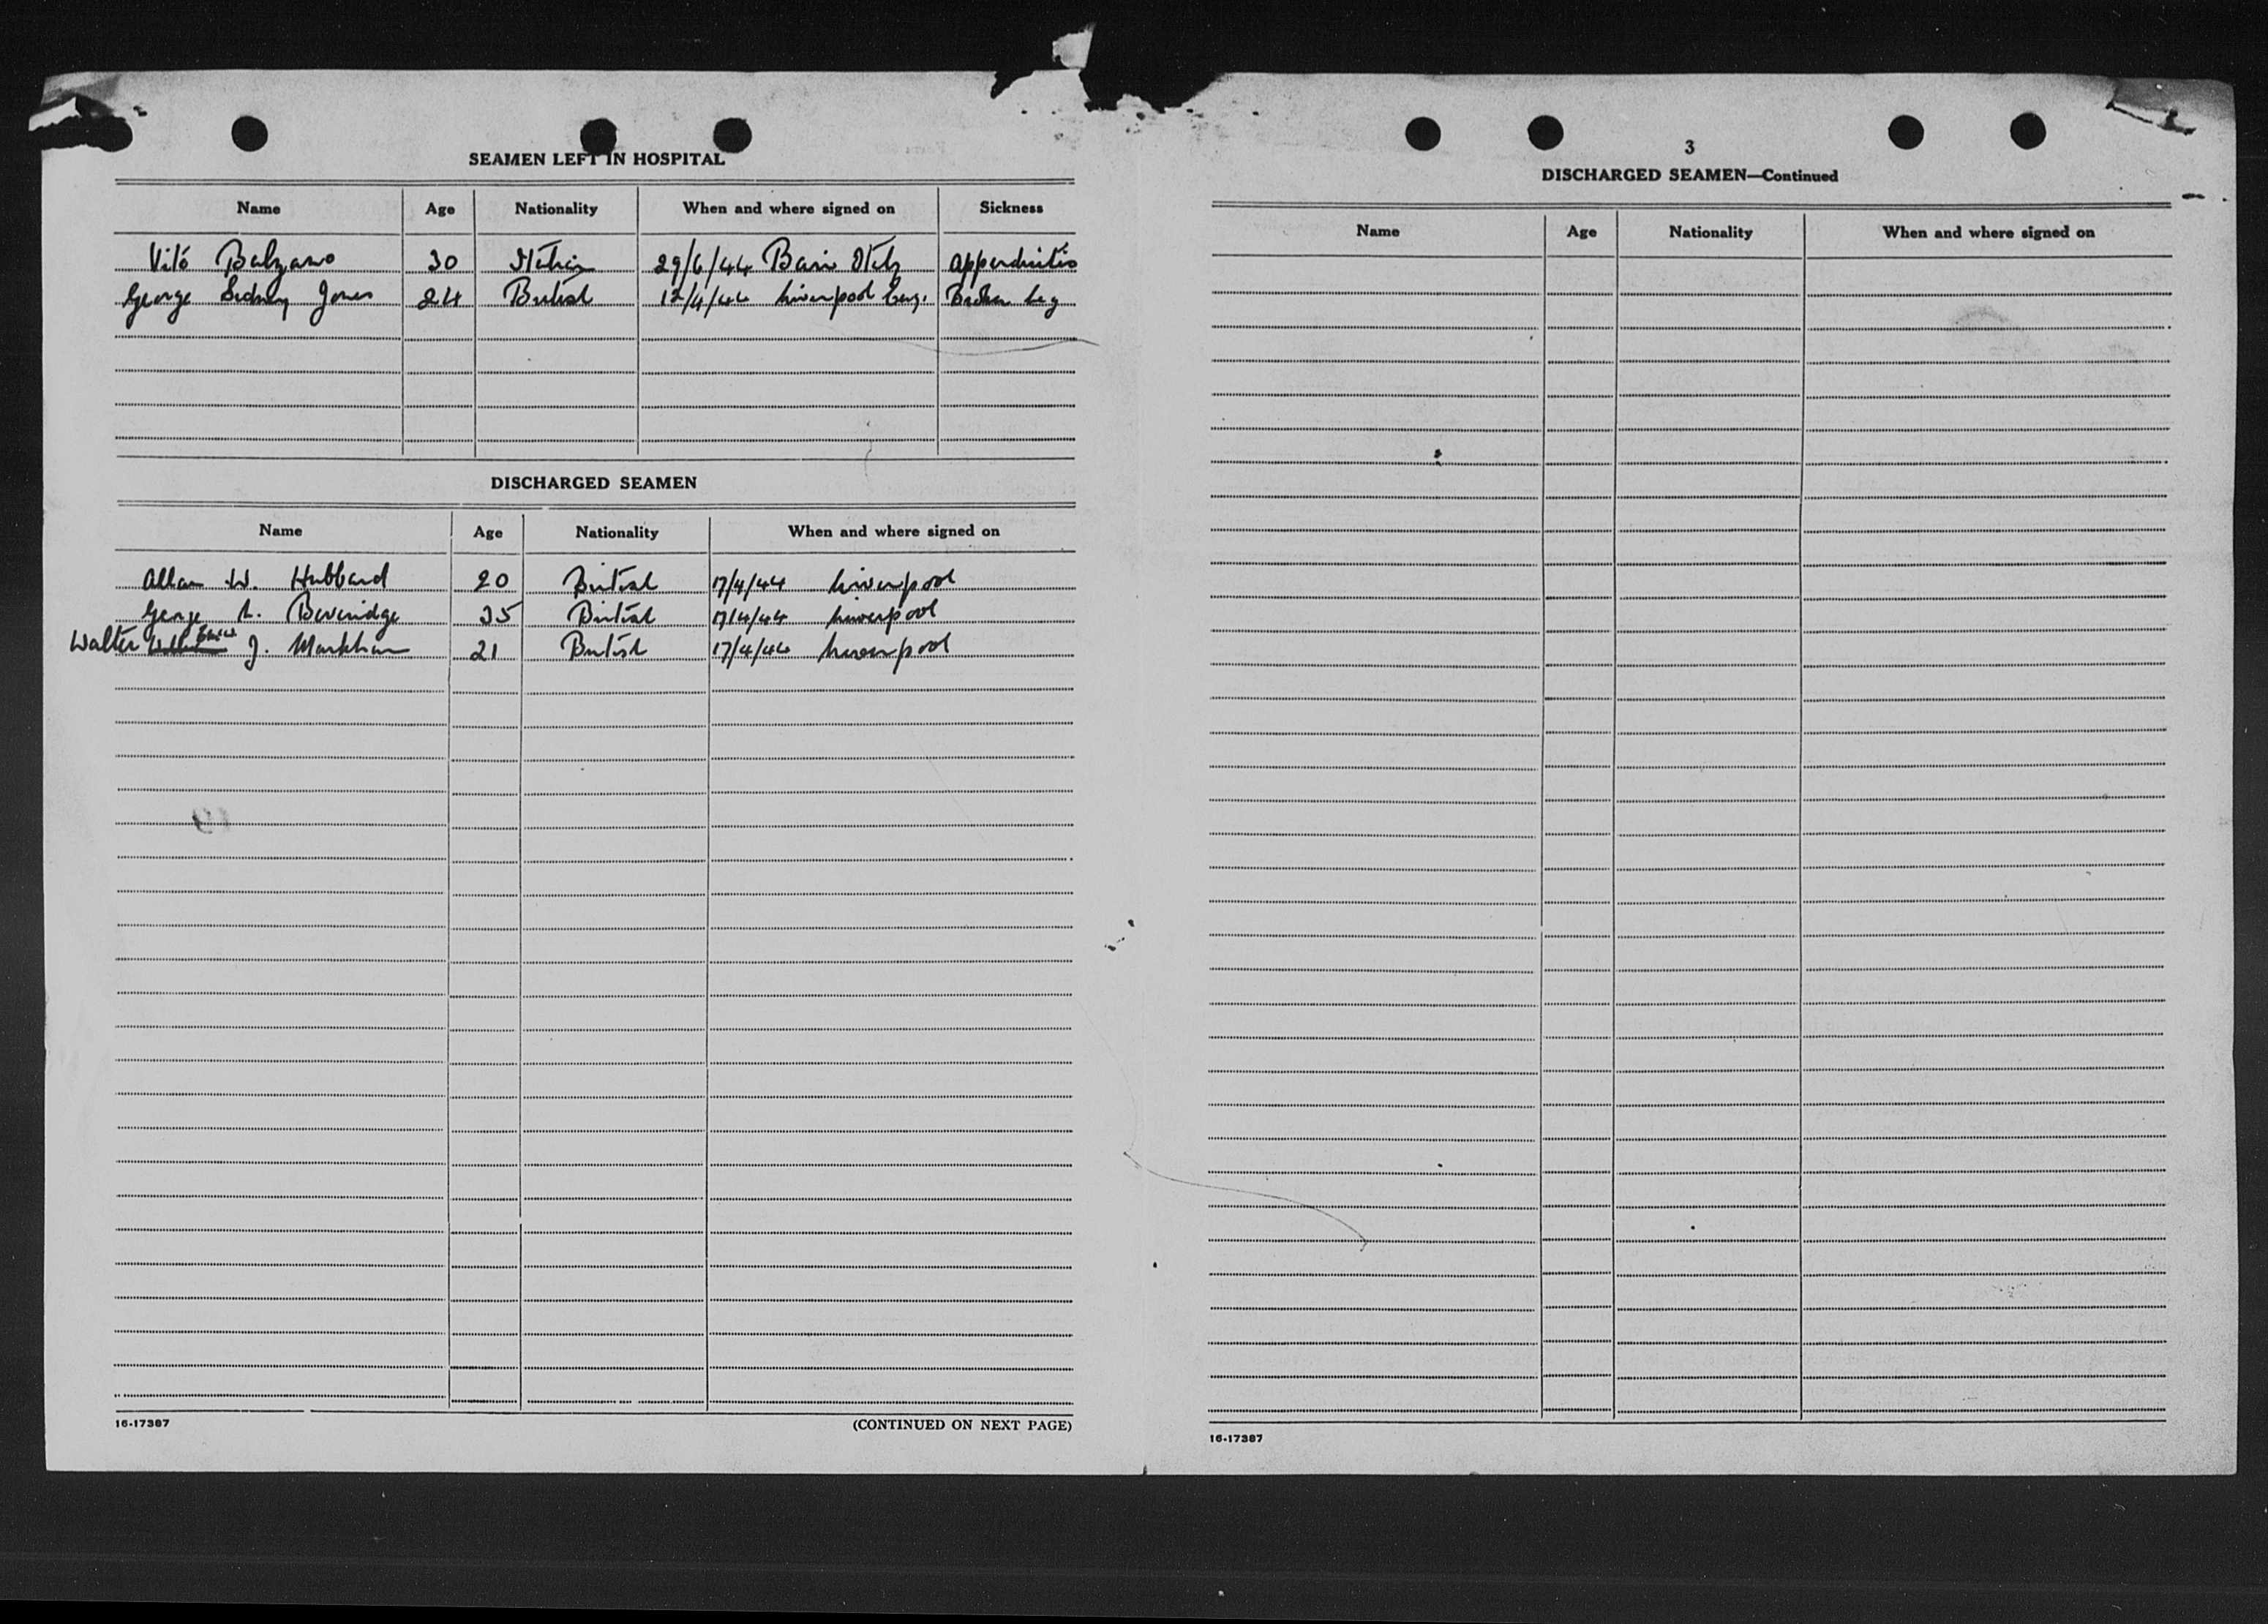 SEAMEN LEFT IN HOSPITAL
Name Age Nationality When and where signed on Sickness
Vito Balzano 30 Italian 29/6/44 Bari Italy appendicitis
George Sidney Jones 24 British 12/4/44 Liverpool Eng. Broken leg
DISCHARGED SEAMEN
Name Age Nationality When and where signed on
Allan W. Hubbard 20 British 17/4/44 Liverpool
George L. Beveridge 35 British 17/4/44 Liverpool
Walter J. Markham 21 British 17/4/44 Liverpool
16-17387 (CONTINUED ON NEXT PAGE)
3
DISCHARGED SEAMEN—Continued
Name Age Nationality When and where signed on
16-17387